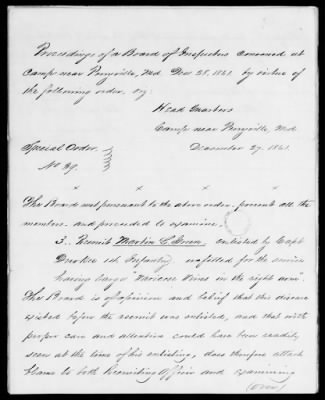 Proceedings of a Board of Inspectors convened at
Camp near Perryville, Md Dec 28, 1861 by virtue of
the following order. viz;
Head Quarters
Camp near Perryville, Md.
December 27. 1861.
Special Order.
No 39.
x x x x
The Board met pursuant to the above order. present all the
members. and proceeded to examine.
3. Recruit Martin C. enlisted by Capt
11th Infantry unfitted for the service
having large "Varicose Veins in the right arm".
The Board is of opinion and belief that this disease
existed before the recruit was enlisted, and that with
proper care and attention could have been readily
seen at the time of his enlisting, does therefore attach
blame to both Recruiting Officer and examining
(over)